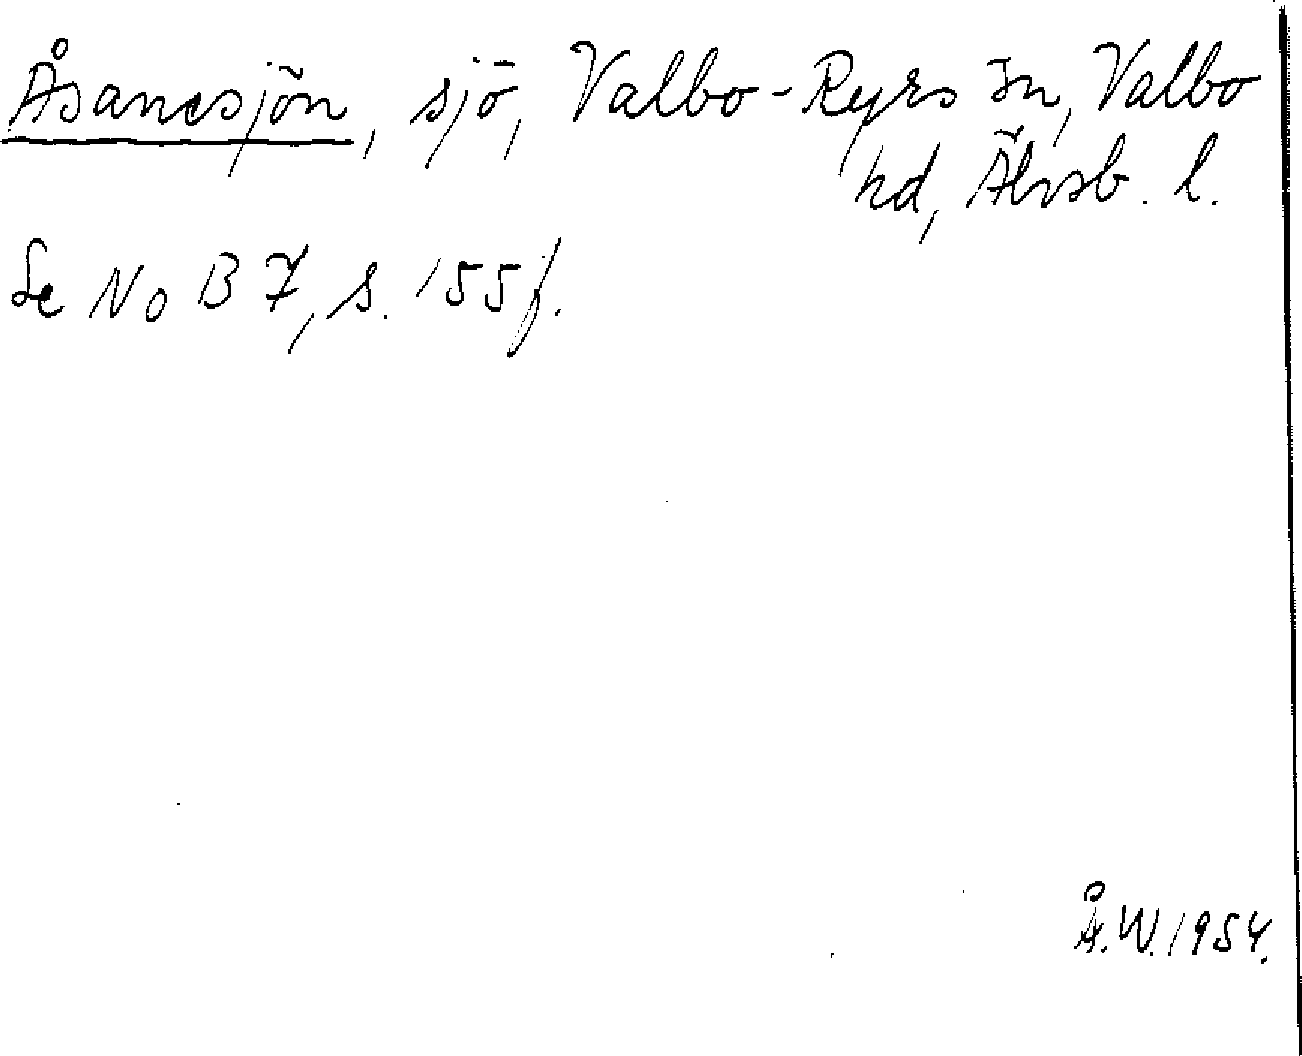 Åsanesjön, sjö, Valbo-Ryrs sn, Valbo
hd, Älvsb. l.
Se NoB 7, s. 155 f.
Å.W. 1954.